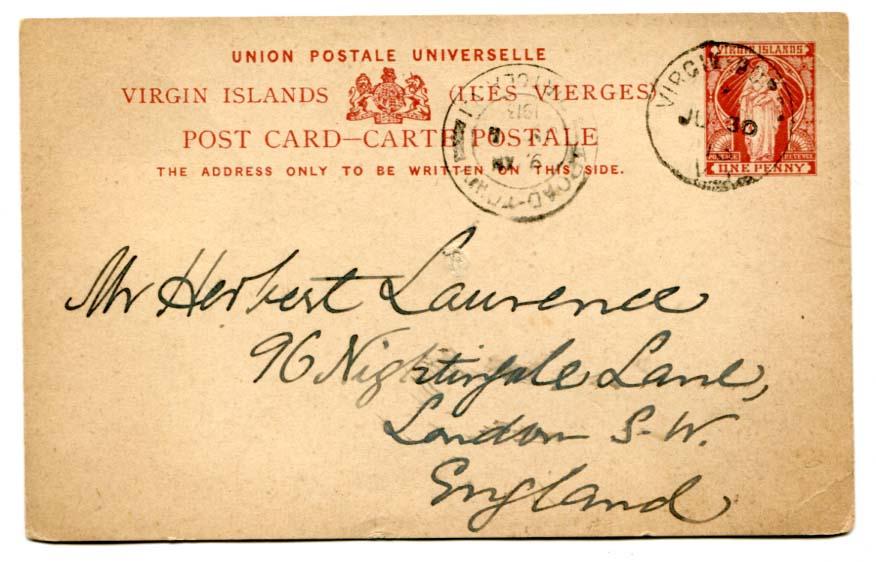 UNION POSTALE UNIVERSELLE
VIRGIN ISLANDS (ILES VIERGES)
POST CARD—CARTE POSTALE
THE ADDRESS ONLY TO BE WRITTEN ON THIS SIDE.
VIRGIN ISLANDS
POSTAGE REVENUE
ONE PENNY
VIRGIN
JU 30
ROAD-TOWN
1913
AM
Mr Herbert Laurence
96 Nightingale Lane,
London S.W.
England